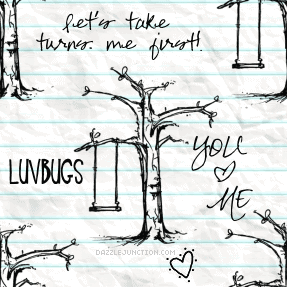 Let's take
turns. me first!
YOU
LUVBUGS
ME
DAZZLEJUNCTION.COM